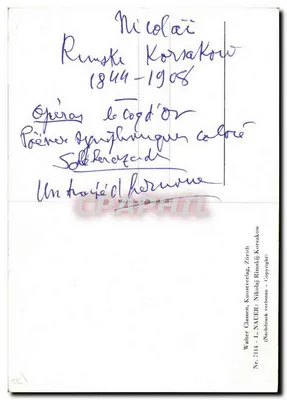 Nicolaï
Rimski Korsakow
1844-1908
Opéras le Coq d'or
Poèmes symphoniques coloré
Schéhérazade
Un traité d'harmonie
Walter Classen, Kunstverlag, Zürich
Nr. 7114 - L. NAUER: Nikolaj Rimskij-Korsakow
(Nachdruck verboten - Copyright)